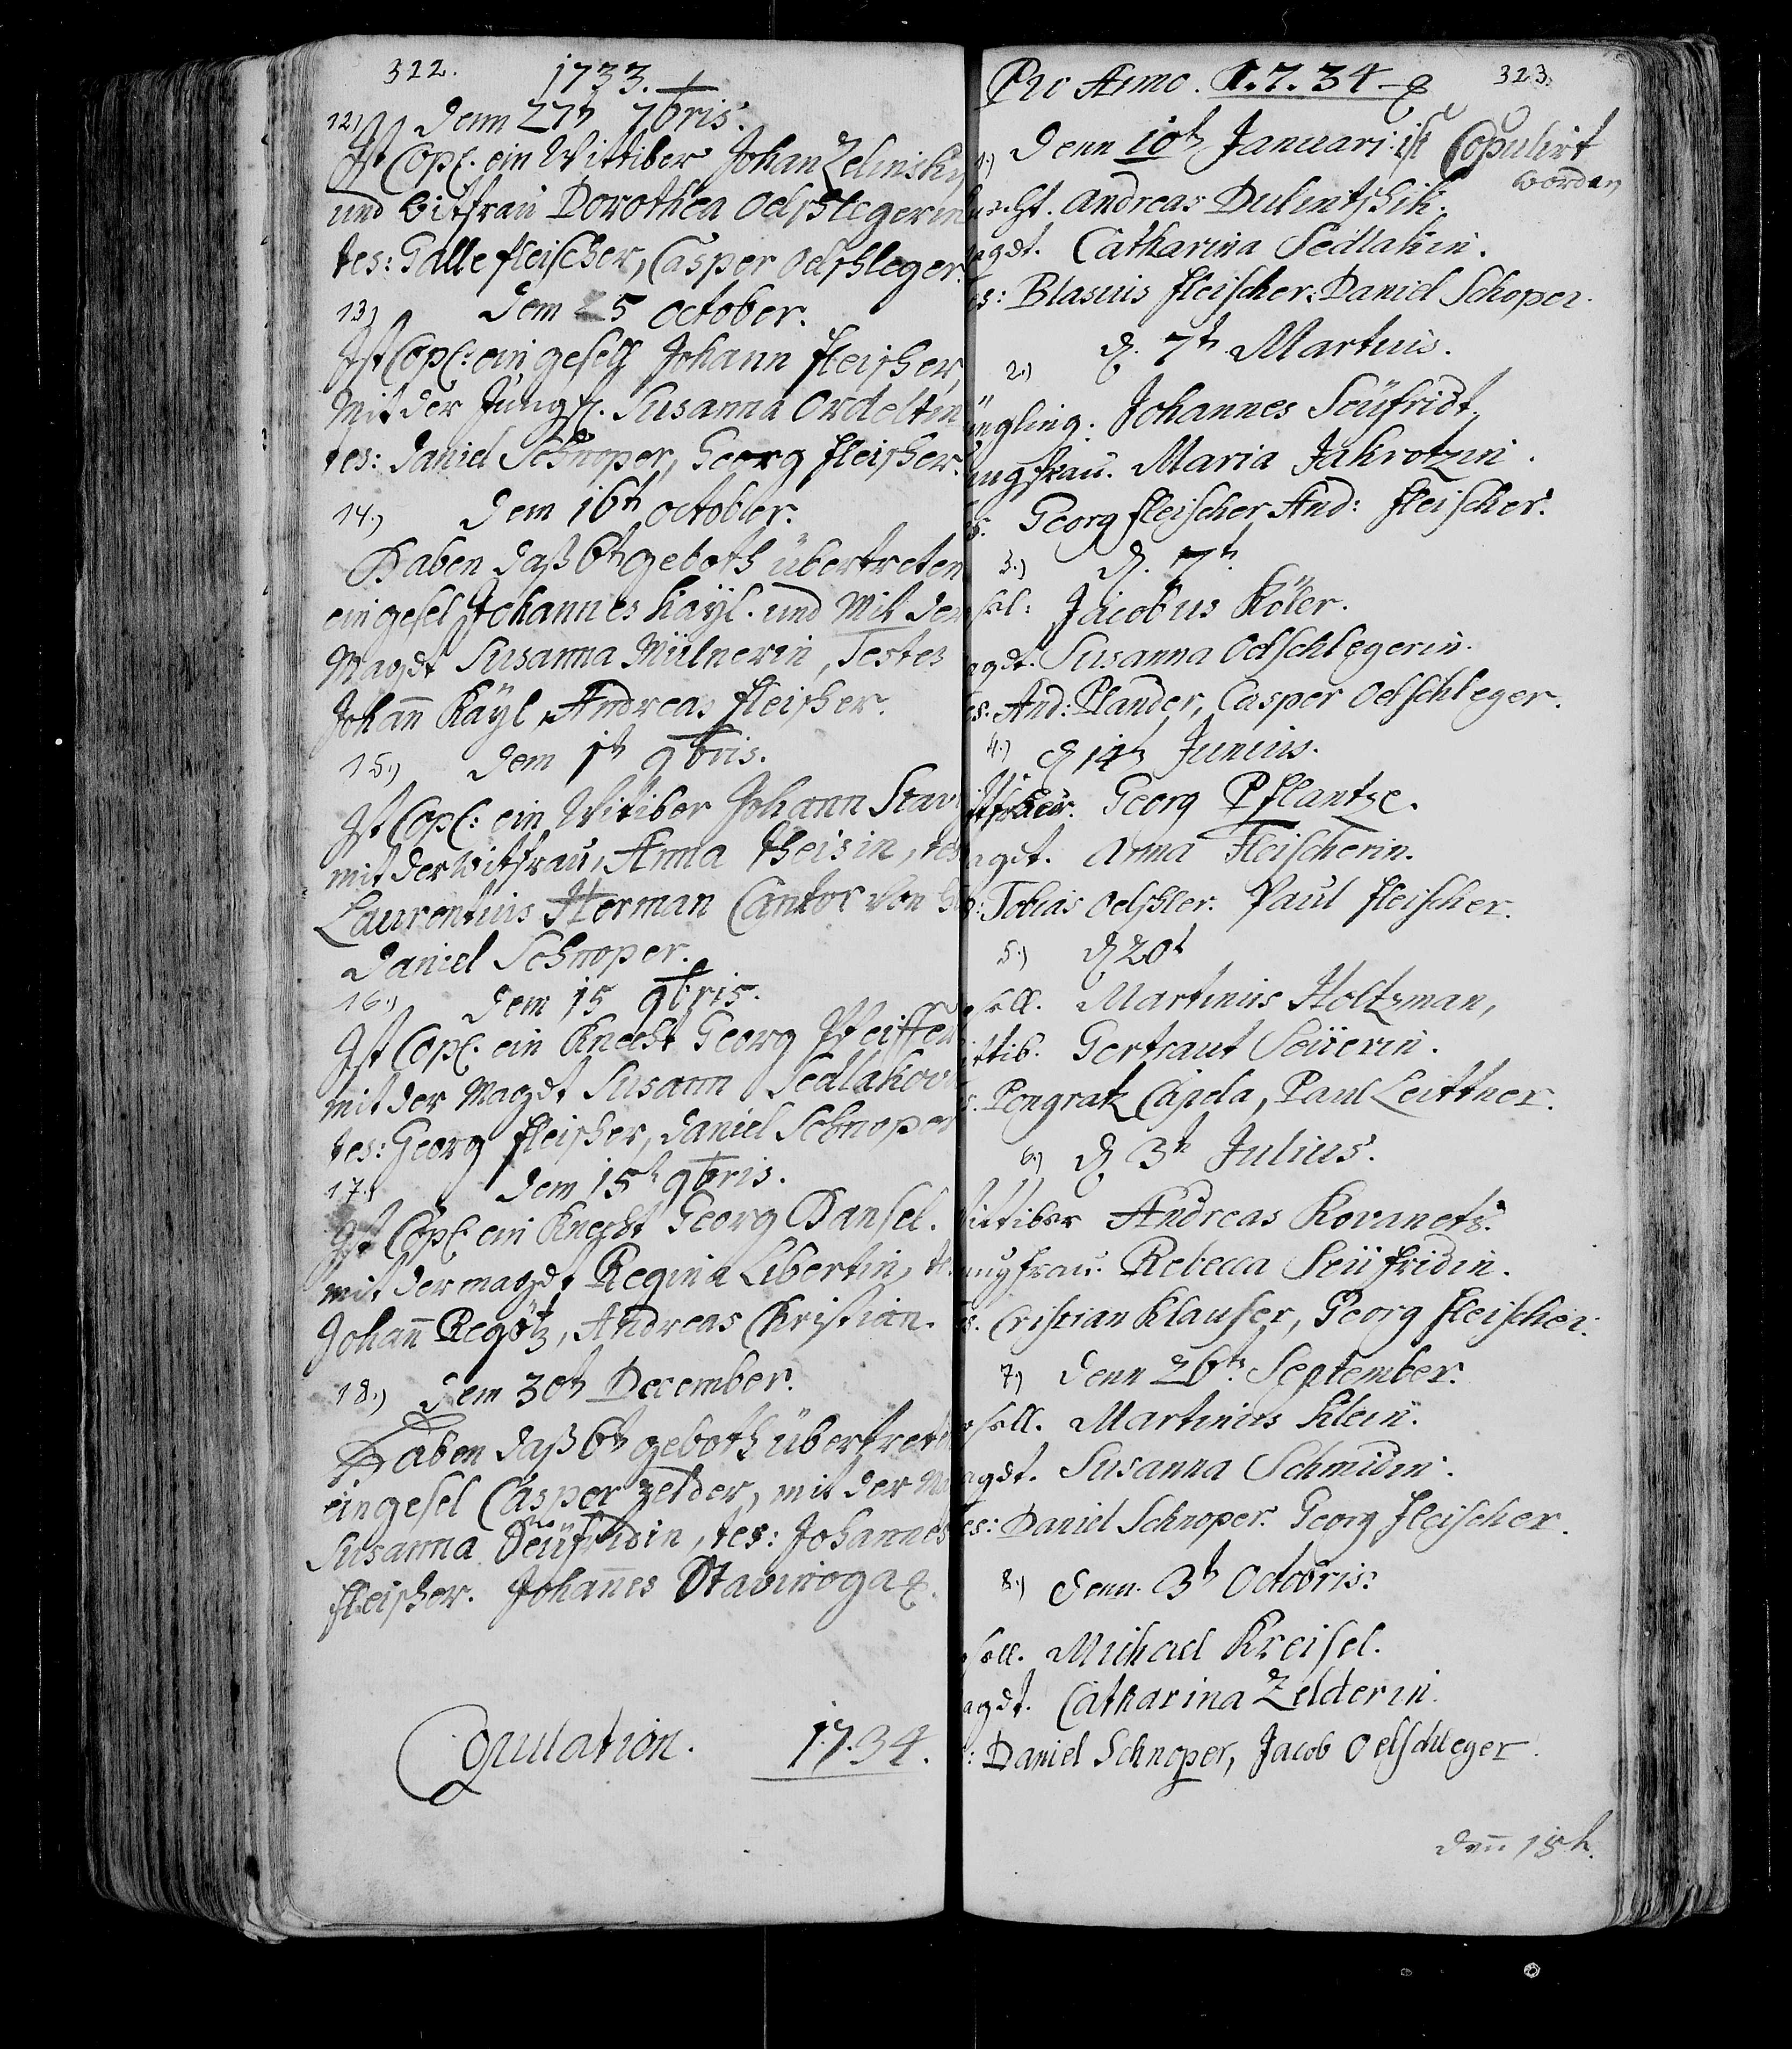 322.
1733.
12.) Denn 27th 7bris.
Ist Cop: ein Wittiber Johan Zelinsky
und Witfrau Dorothea Oelschlegerin
tes: Galle fleischer, Casper Oelschleger.
13) Dem 25 October.
Ist Cop: ein gesell Johann fleischer,
Mit der Jungf. Susanna Ordeltin
tes: Daniel Schnoper, Georg fleischer.
14.) Dem 16th october.
Haben daß 6th geboth übertreten
ein gesel Johannes Kayl. und Mit der
Magdt Susanna Mülnerin, Testes
Johañ Käyl, Andreas fleischer.
15.) Dem 1th 9bris.
Ist Cop: ein Witiber Johann Stav
mit der Witfrau, Anna theisin, tes
Laurentius Herman Cantor von
Daniel Schnoper.
16.) Dem 15 9bris.
Ist Cop: ein Knecht Georg Pfeiffer
mit der Magdt Susann Sedlakov
tes: Georg fleischer, Daniel Schnoper
17.) Dem 15th 9bris.
Ist Cop: ein Knecht Georg Hansel.
mit der magdt Regina Libertin, te
Johañ Regötz, Andreas Christian.
18.) Dem 30th December.
Haben daß 6th geboth übertret
ein gesel Casper Zelder, mit der M
Susanna Seüfridin, tes: Johannes
fleischer. Johañes Stavinoga
Copulation. 1.7.34.
Pro Anno. 1.7.34 323.
1.) Denn 10th Januari: ist Copulirt
worden
necht. Andreas Dulintschik.
agdt. Catharina Sedlakin.
es: Blasius fleischer: Daniel Schoper.
2.) d. 7th Martius.
üngling. Johannes Seüfridt,
ungfrau. Maria Jakrotzin.
s. Georg fleischer And: fleischer.
3.) d. 7th
sel: Jacobus Köler.
agdt. Susanna Oelschlegerin.
es: And: Plander, Casper Oelschleger.
4.) d 14th Junius.
Georg Pflantze.
agdt. Anna Fleischerin.
s: Tobias Oelschler. Paul fleischer.
5.) d 20t
sell. Martinus Holtzman,
ittib. Gertraut Seüerin.
s. Pongratz Capla, Paul Leittner.
6.) d 3th Julius.
ittiber Andreas Kovanets.
ungfrau. Rebecca Seüfridin.
s. Cristian Klauser, Georg fleischer.
7.) Denn 26th September.
sell. Martinus Klein.
agdt. Susanna Schmidin.
es: Daniel Schnoper. Georg fleischer.
8.) Denn. 3th Octobris:
sell. Michael Kreisel.
agdt. Catharina Zelderin.
: Daniel Schnoper, Jacob Oelschleger.
Deñ 18th.